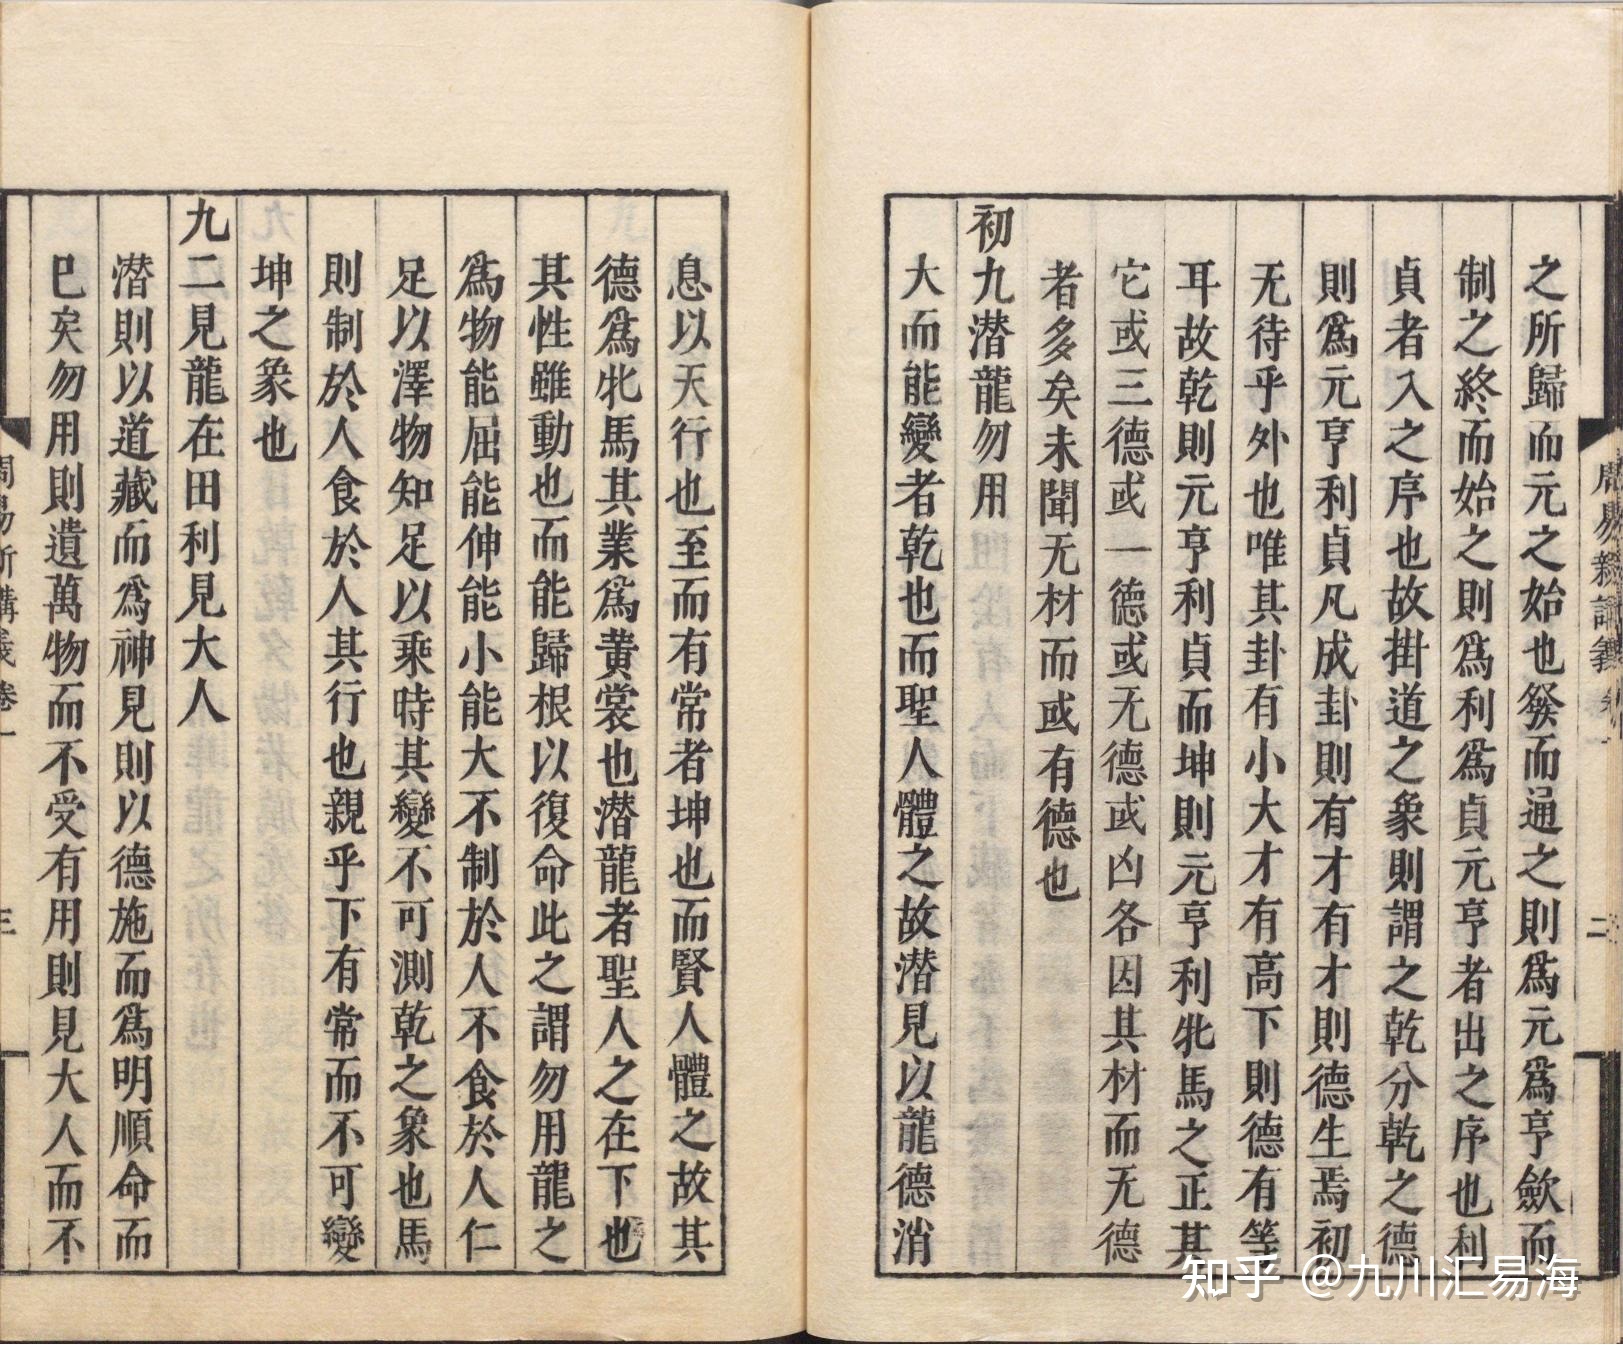 之所歸而元之始也發而通之則爲元爲亨歛而
制之終而始之則爲利爲貞元亨者出之序也利
貞者入之序也故掛道之象則謂之乾分乾之德
則爲元亨利貞凡成卦則有才有才則德生焉初
无待乎外也唯其卦有小大才有高下則德有等
耳故乾則元亨利貞而坤則元亨利牝馬之正其
它或三德或一德或无德或凶各因其材而无德
者多矣未聞无材而或有德也
初九潛龍勿用
大而能變者乾也而聖人體之故潛見以龍德消
息以天行也至而有常者坤也而賢人體之故其
德爲牝馬其業爲黄裳也潛龍者聖人之在下也
其性雖動也而能歸根以復命此之謂勿用龍之
爲物能屈能伸能小能大不制於人不食於人仁
足以澤物知足以乘時其變不可測乾之象也馬
則制於人食於人其行也親乎下有常而不可變
坤之象也
九二見龍在田利見大人
潛則以道藏而爲神見則以德施而爲明順命而
已矣勿用則遺萬物而不受有用則見大人而不
周易新講義 卷一
三
二
知乎 @九川汇易海